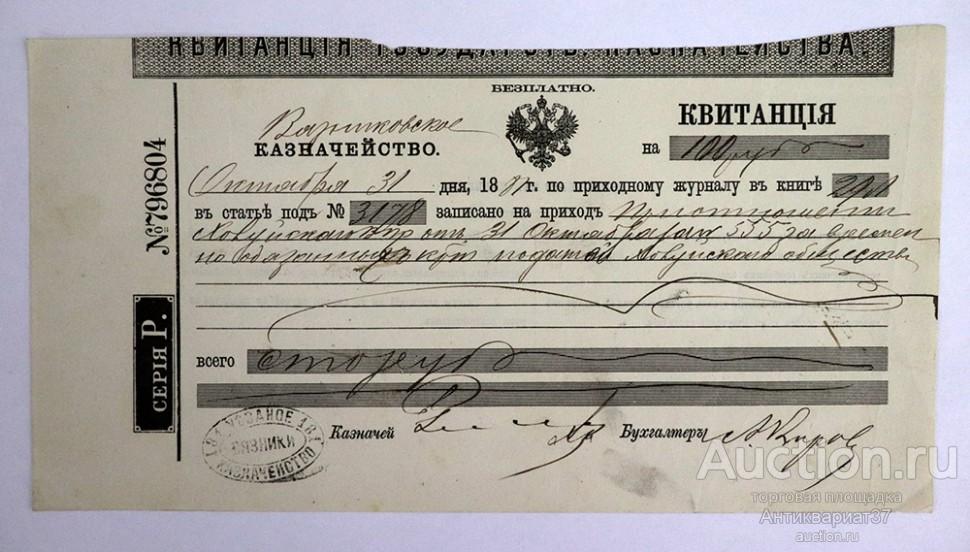 КВИТАНЦІЯ ГОСУДАРСТВ. КАЗНАЧЕЙСТВА.
БЕЗПЛАТНО.
Вязниковское
КАЗНАЧЕЙСТВО.
КВИТАНЦІЯ
на 100 руб
Октября 31 дня, 18 г. по приходному журналу въ книгѣ
въ статьѣ подъ № 3178 записано на приходъ При отношении
от 31 Октября за № 555 за времен
но обязанных общества
всего Сто руб
Казначей
Бухгалтеръ А. Киров
№ 796804
СЕРІЯ Р.
УѢЗДНОЕ
ВЯЗНИКИ
КАЗНАЧЕЙСТВО
Auction.ru
торговая площадка
Антиквариат37
auction.ru